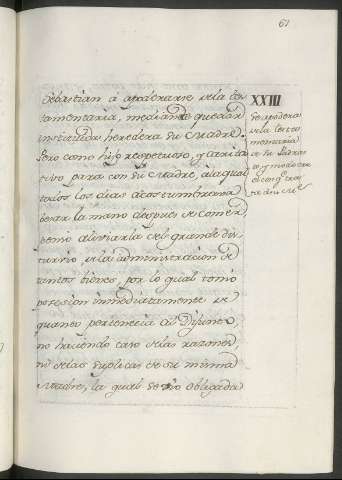 61
Sebastian á apoderarse de la tes
tamentaria, mediando quedar
instituida heredera su Madre.
Pero como hijo respetuoso, y carita
tivo para con su Madre, alaqual
todos los dias acostumbrava
besar la mano despues de comer,
temio aliviarla del grande dis
turvio, de la administracion de
tantos bienes, por lo qual tomó
posesion inmediatamente de
quanto pertenecia al Difunto,
no haciendo caso de las razones
ni de las suplicas de su misma
Madre, la qual se vio obligada
XXIII
Se apodera
de la testa
mentaria
de su Padras
to, y modo ex
con q.e tra
ta a su M.e